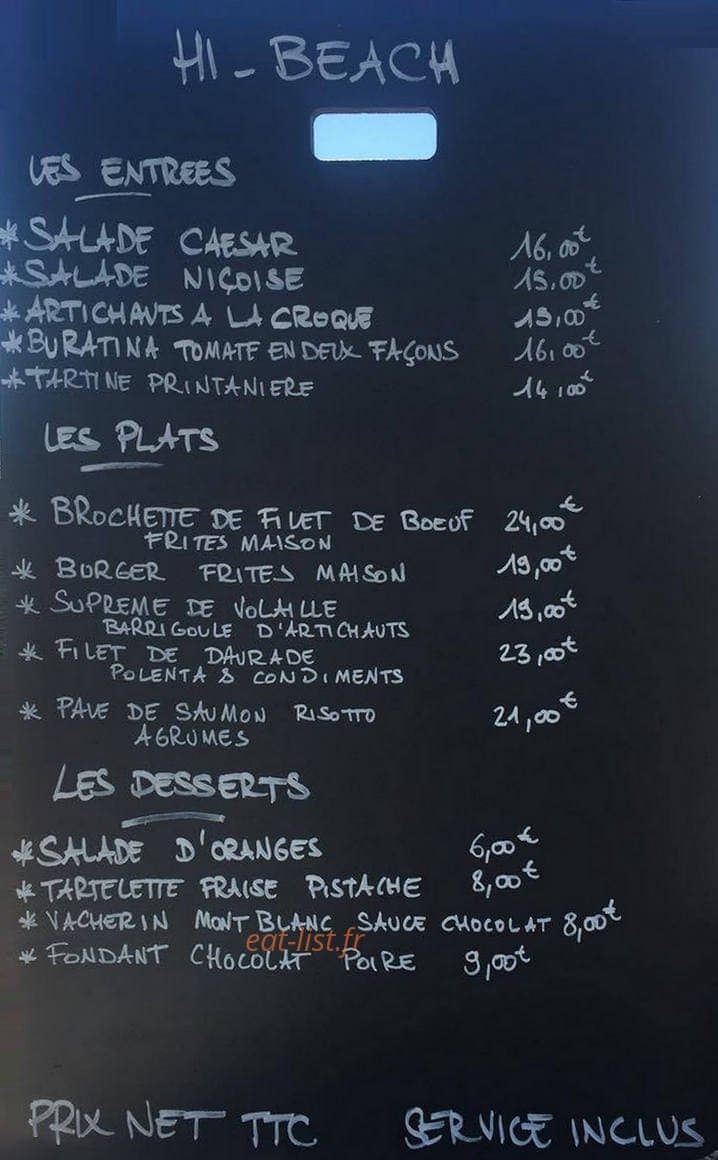 HI - BEACH
LES ENTREES
* SALADE CAESAR 16,00€
* SALADE NIÇOISE 15.00€
* ARTICHAUTS A LA CROQUE 15,00€
* BURATINA TOMATE EN DEUX FAÇONS 16,00€
* TARTINE PRINTANIERE 14,00€
LES PLATS
* BROCHETTE DE FILET DE BOEUF 24,00€
FRITES MAISON
* BURGER FRITES MAISON 19,00€
* SUPREME DE VOLAILLE 19,00€
BARRIGOULE D'ARTICHAUTS
* FILET DE DAURADE 23,00€
POLENTA & CONDIMENTS
* PAVE DE SAUMON RISOTTO 21,00€
AGRUMES
LES DESSERTS
* SALADE D'ORANGES 6,00€
* TARTELETTE FRAISE PISTACHE 8,00€
* VACHERIN MONT BLANC SAUCE CHOCOLAT 8,00€
eat-list.fr
* FONDANT CHOCOLAT POIRE 9,00€
PRIX NET TTC SERVICE INCLUS